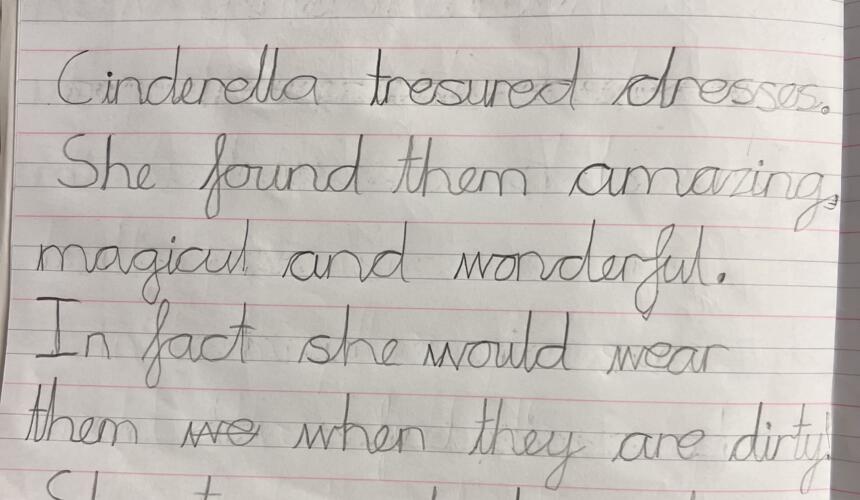 Cinderella tresured dresses.
She found them amazing,
magicul and wonderful.
In fact she would wear
them when they are dirty!